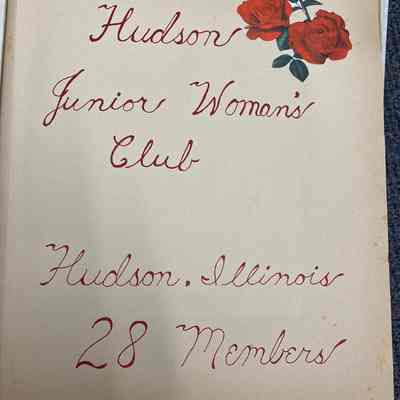 Hudson
Junior Woman's
Club
Hudson, Illinois
28 Members